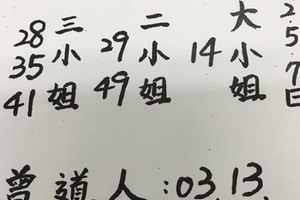 257日
大小姐 14
二小姐 29 49
三小姐 28 35 41
曾道人:03 13